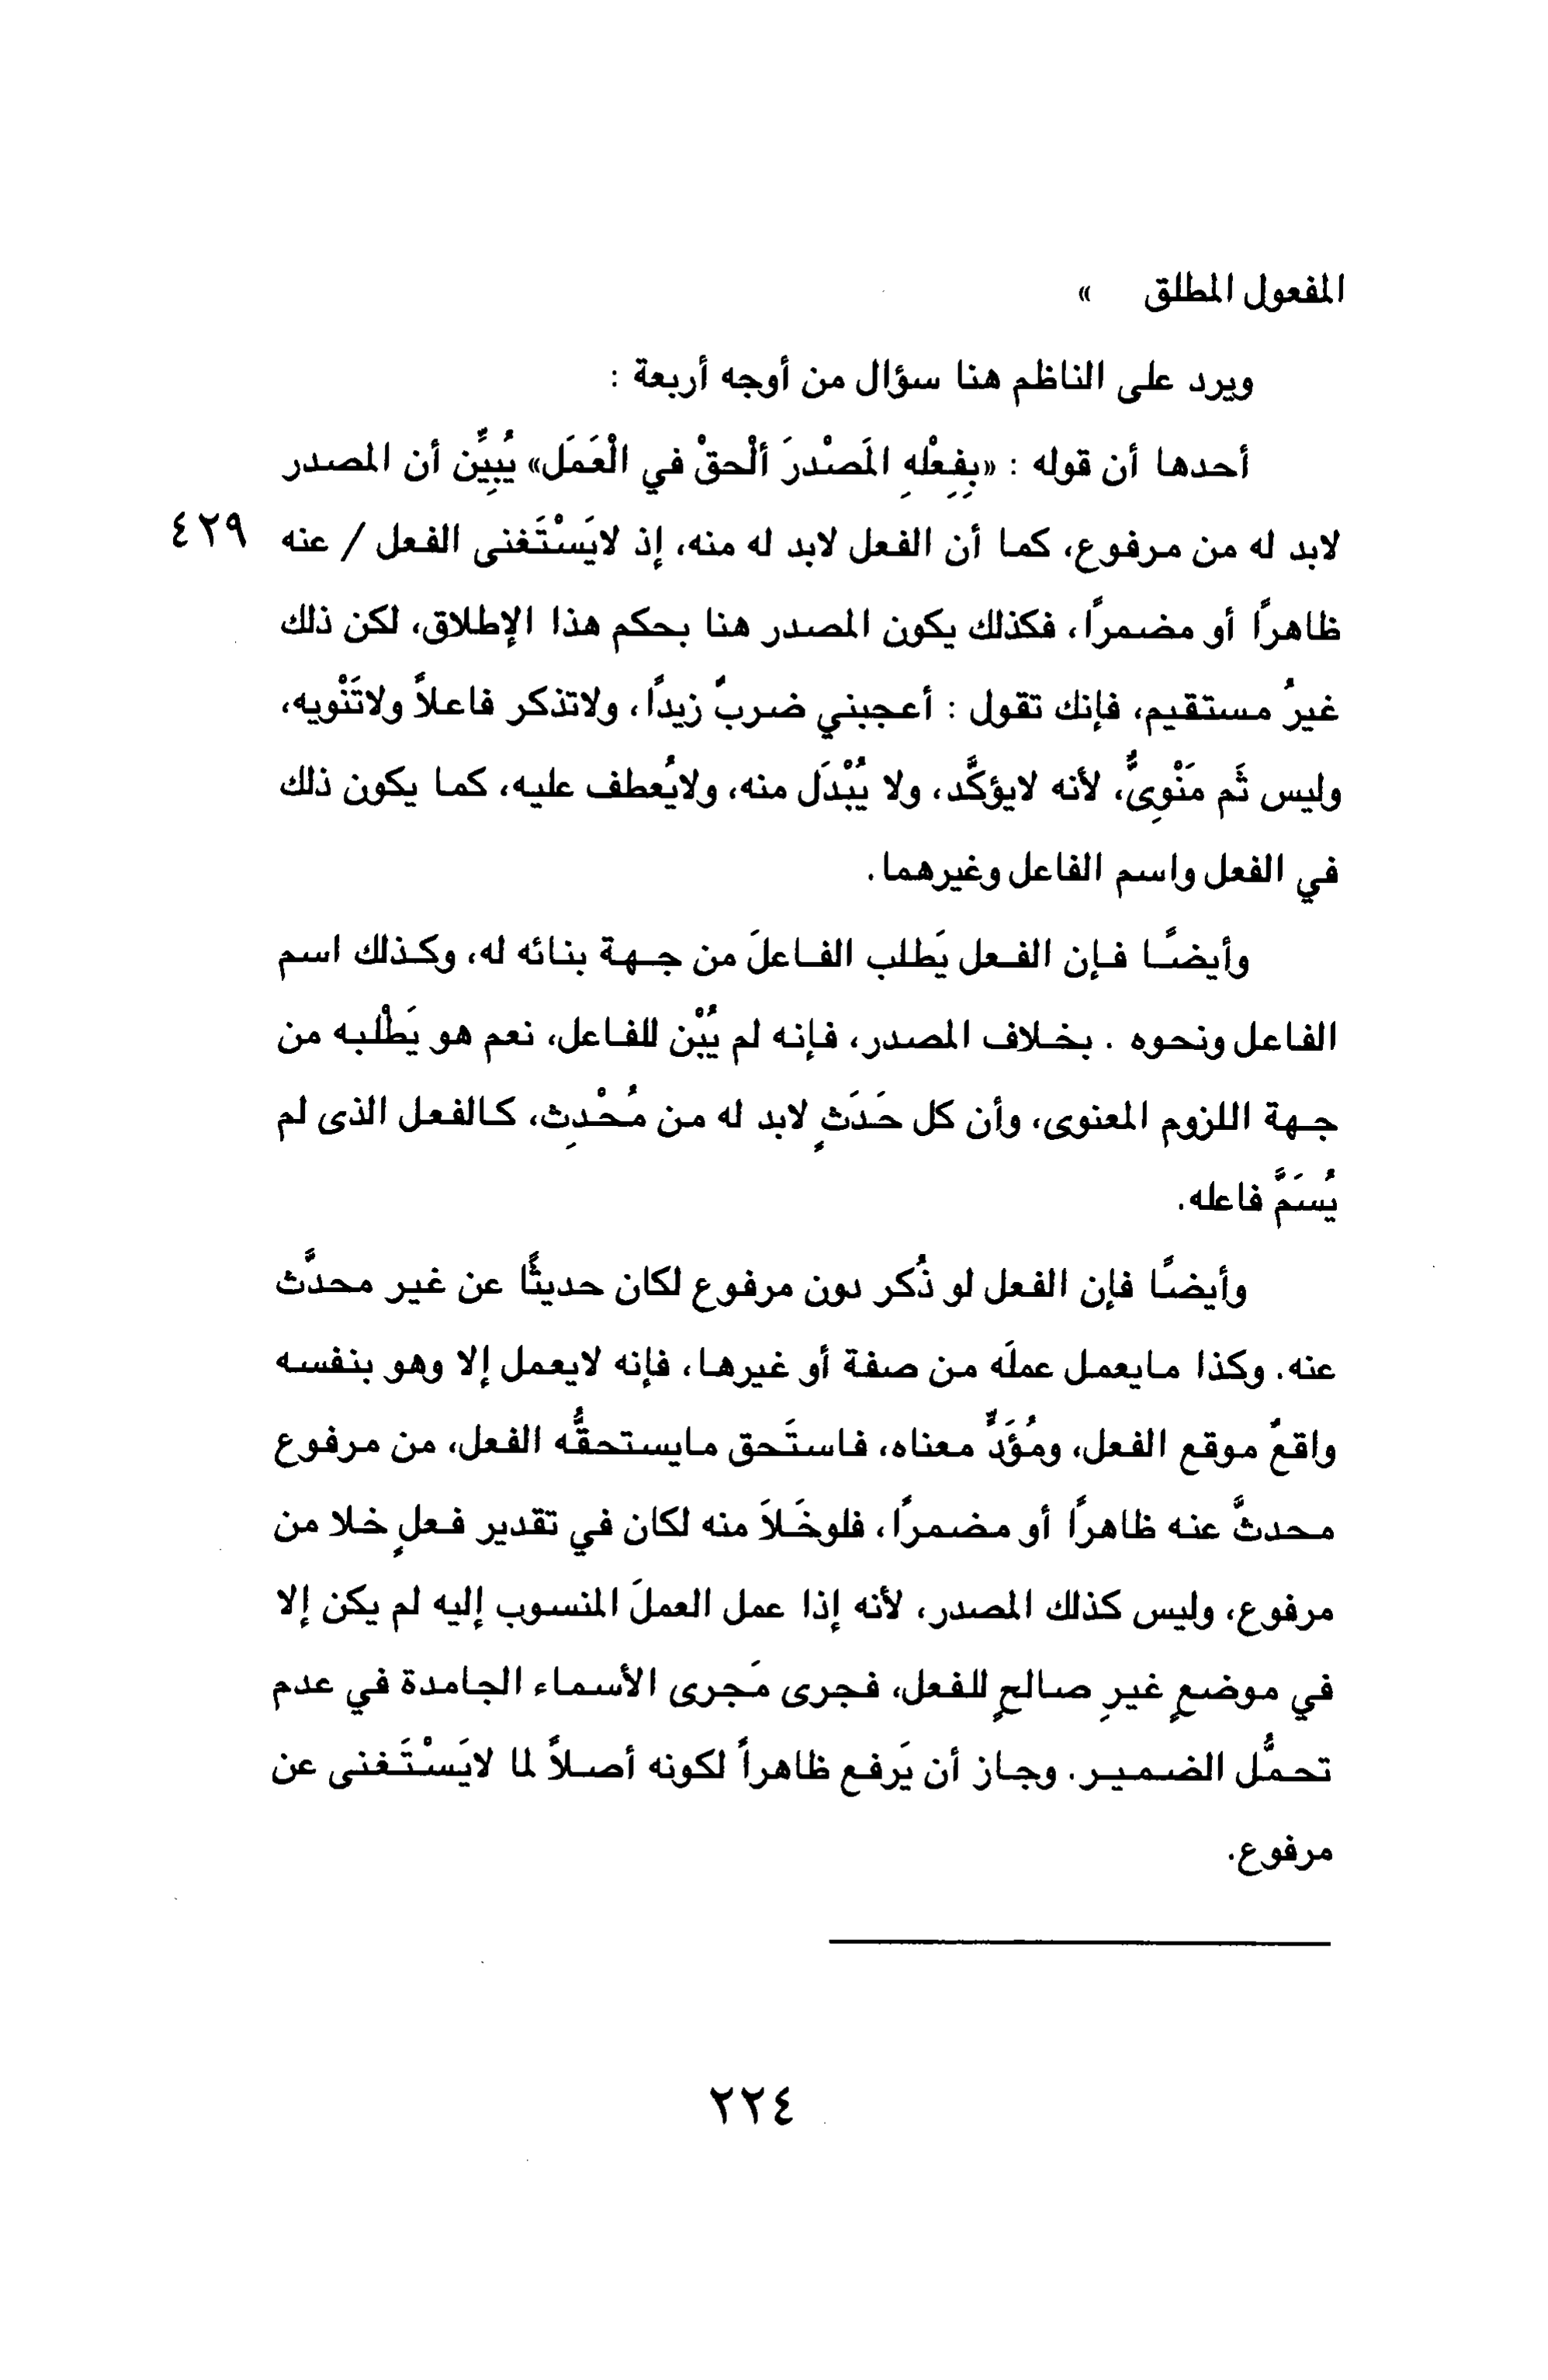 المفعول المطلق »
ويرد على الناظم هنا سؤال من أوجه أربعة :
أحدها أن قوله : «بِفِعْلهِ المَصْدرَ ألْحقْ في الْعَمَل» يُبيِّن أن المصدر
لابد له من مرفوع، كما أن الفعل لابد له منه، إذ لايَسْتَغنى الفعل / عنه ٤٢٩
ظاهراً أو مضمراً، فكذلك يكون المصدر هنا بحكم هذا الإطلاق، لكن ذلك
غيرُ مستقيم، فإنك تقول : أعجبني ضربٌ زيداً، ولاتذكر فاعلاً ولاتَنْويه،
وليس ثَم مَنْوِىٌّ، لأنه لايؤكَّد، ولا يُبْدَل منه، ولايُعطف عليه، كما يكون ذلك
في الفعل واسم الفاعل وغيرهما.
وأيضًا فإن الفعل يَطلب الفاعلَ من جهة بنائه له، وكذلك اسم
الفاعل ونحوه . بخلاف المصدر، فإنه لم يُبْن للفاعل، نعم هو يَطْلبه من
جهة اللزوم المعنوى، وأن كل حَدَثٍ لابد له من مُحْدِث، كالفعل الذى لم
يُسَمَّ فاعله.
وأيضًا فإن الفعل لو ذُكر دون مرفوع لكان حديثًا عن غير محدَّث
عنه. وكذا مايعمل عملَه من صفة أو غيرها، فإنه لايعمل إلا وهو بنفسه
واقعٌ موقع الفعل، ومُؤَدٍّ معناه، فاستَحق مايستحقُّه الفعل، من مرفوع
محدثَّ عنه ظاهراً أو مضمراً، فلوخَلاَ منه لكان في تقدير فعلٍ خلا من
مرفوع، وليس كذلك المصدر، لأنه إذا عمل العملَ المنسوب إليه لم يكن إلا
في موضعٍ غيرِ صالحٍ للفعل، فجرى مَجرى الأسماء الجامدة في عدم
تحمُّل الضمير. وجاز أن يَرفع ظاهراً لكونه أصلاً لما لايَسْتَغنى عن
مرفوع.
٢٢٤